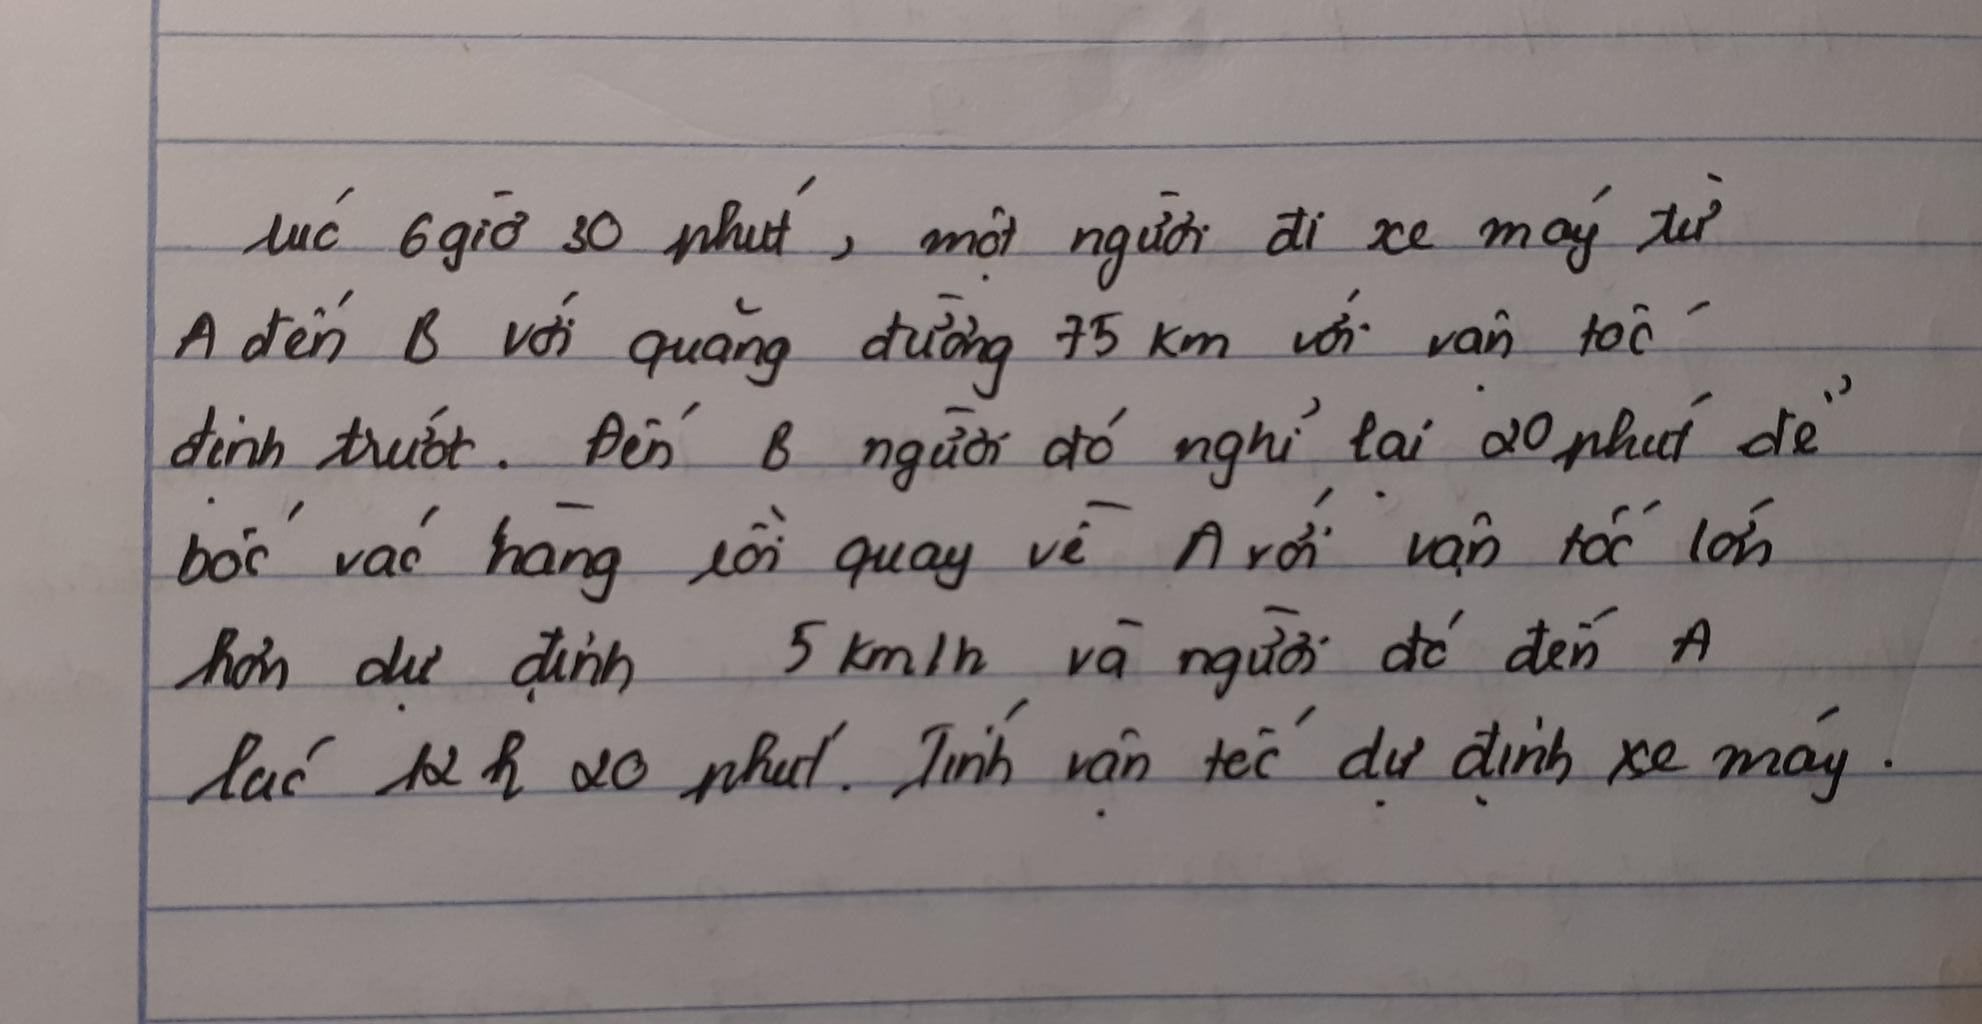 Lúc 6 giờ 30 phút, một người đi xe máy từ
A đến B với quãng đường 75 km với vận tốc
định trước. Đến B người đó nghỉ lại 20 phút để
bốc vác hàng rồi quay về A với vận tốc lớn
hơn dự định 5 km/h và người đó đến A
lúc 12 h 20 phút. Tính vận tốc dự định xe máy.